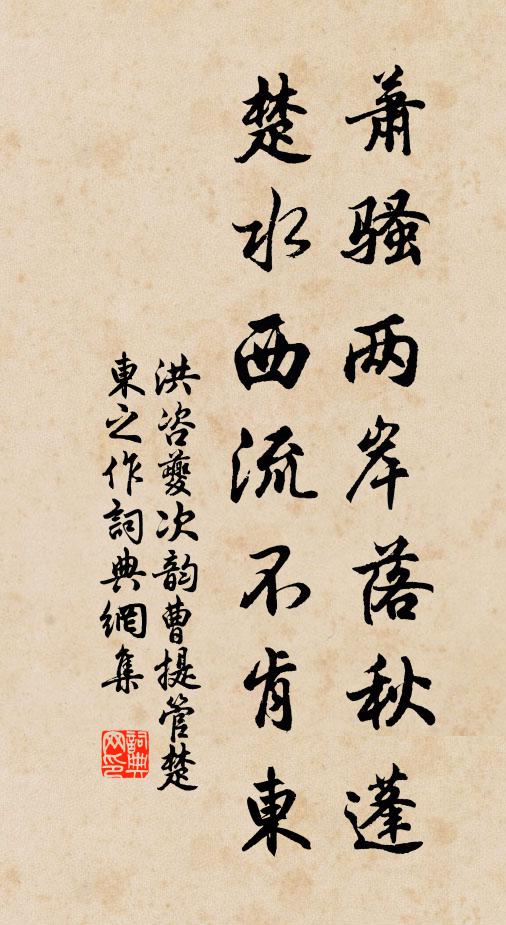 萧骚两岸落秋蓬
楚水西流不肯東
洪咨夔次韵曹提管楚
東之作詞典網集
詞典網印